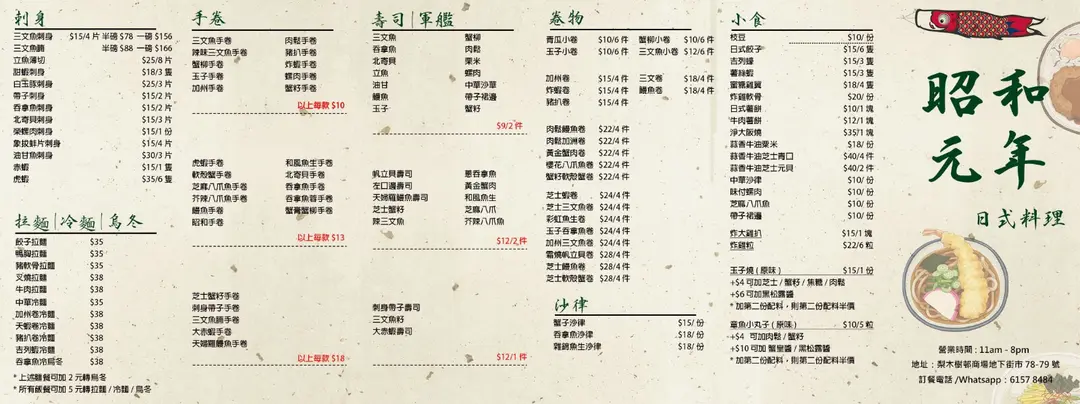 刺身
三文魚刺身 $15/4 片 半磅 $78 一磅 $156
三文魚腩 半磅 $88 一磅 $166
立魚薄切 $25/8 片
甜蝦刺身 $18/3 隻
白玉豚刺身 $25/3 片
帶子刺身 $15/2 片
吞拿魚刺身 $15/2 片
北寄貝刺身 $15/3 片
榮螺肉刺身 $15/1 份
象拔蚌片刺身 $15/4 片
油甘魚刺身 $30/3 片
赤蝦 $15/1 隻
虎蝦 $35/6 隻
拉麵|冷麵|烏冬
餃子拉麵 $35
鴨胸拉麵 $35
豬軟骨拉麵 $35
叉燒拉麵 $38
牛肉拉麵 $38
中華冷麵 $35
加州卷冷麵 $38
天蝦卷冷麵 $38
豬扒卷冷麵 $38
吉列蝦冷麵 $38
吞拿魚冷烏冬 $38
* 上述麵餐可加 2 元轉烏冬
* 所有飯餐可加 5 元轉拉麵 / 冷麵 / 烏冬
手卷
三文魚手卷 肉鬆手卷
辣味三文魚手卷 豬扒手卷
蟹柳手卷 炸蝦手卷
玉子手卷 螺肉手卷
加州手卷 蟹籽手卷
以上每款 $10
虎蝦手卷 和風魚生手卷
軟殼蟹手卷 北寄貝手卷
芝麻八爪魚手卷 吞拿魚手卷
芥辣八爪魚手卷 吞拿魚蓉手卷
鰻魚手卷 蟹膏蟹柳手卷
昭和手卷
以上每款 $13
芝士蟹籽手卷
刺身帶子手卷
三文魚腩手卷
大赤蝦手卷
天婦羅鰻魚手卷
以上每款 $18
壽司|軍艦
三文魚 蟹柳
吞拿魚 肉鬆
北寄貝 粟米
立魚 螺肉
油甘 中華沙律
鰻魚 帶子裙邊
玉子 蟹籽
$9/2 件
帆立貝壽司 蔥吞拿魚
左口邊壽司 黃金蟹肉
天婦羅鰻魚壽司 和風魚生
芝士蟹籽 芝麻八爪
辣三文魚 芥辣八爪魚
$12/2 件
刺身帶子壽司
三文魚籽
大赤蝦壽司
$12/1 件
卷物
青瓜小卷 $10/6 件 蟹柳小卷 $10/6 件
玉子小卷 $10/6 件 三文魚小卷 $12/6 件
加州卷 $15/4 件 三文卷 $18/4 件
炸蝦卷 $15/4 件 鰻魚卷 $18/4 件
豬扒卷 $15/4 件
肉鬆鰻魚卷 $22/4 件
肉鬆加洲卷 $22/4 件
黃金蟹肉卷 $22/4 件
櫻花八爪魚卷 $22/4 件
蟹籽軟殼蟹卷 $22/4 件
芝士蝦卷 $24/4 件
芝士三文魚卷 $24/4 件
彩虹魚生卷 $24/4 件
玉子吞拿魚卷 $24/4 件
加州三文魚卷 $24/4 件
霜燒帆立貝卷 $28/4 件
芝士鰻魚卷 $28/4 件
芝士軟殼蟹卷 $28/4 件
沙律
蟹子沙律 $15/ 份
吞拿魚沙律 $18/ 份
雜錦魚生沙律 $18/ 份
小食
枝豆 $10/ 份
日式餃子 $15/6 隻
吉列蠔 $15/3 隻
薯絲蝦 $15/3 隻
蜜糖雞翼 $18/4 隻
炸雞軟骨 $20/ 份
日式薯餅 $10/1 塊
牛肉薯餅 $12/1 塊
淨大阪燒 $35/1 塊
蒜香牛油粟米 $18/ 份
蒜香牛油芝士青口 $40/4 件
蒜香牛油芝士元貝 $40/2 件
中華沙律 $10/ 份
味付螺肉 $10/ 份
芝麻八爪魚 $10/ 份
帶子裙邊 $10/ 份
炸大雞扒 $15/1 塊
炸雞粒 $22/6 粒
玉子燒 ( 原味 ) $15/1 份
+$4 可加芝士 / 蟹籽 / 焦糖 / 肉鬆
+$6 可加黑松露醬
* 加第二份配料，則第二份配料半價
章魚小丸子 ( 原味 ) $10/5 粒
+$4 可加肉鬆 / 蟹籽
+$10 可加 蟹皇醬 / 黑松露醬
* 加第二份配料，則第二份配料半價
昭和
元年
日式料理
營業時間 : 11am - 8pm
地址 : 梨木樹邨商場地下街市 78-79 號
訂餐電話 /Whatsapp : 6157 8484